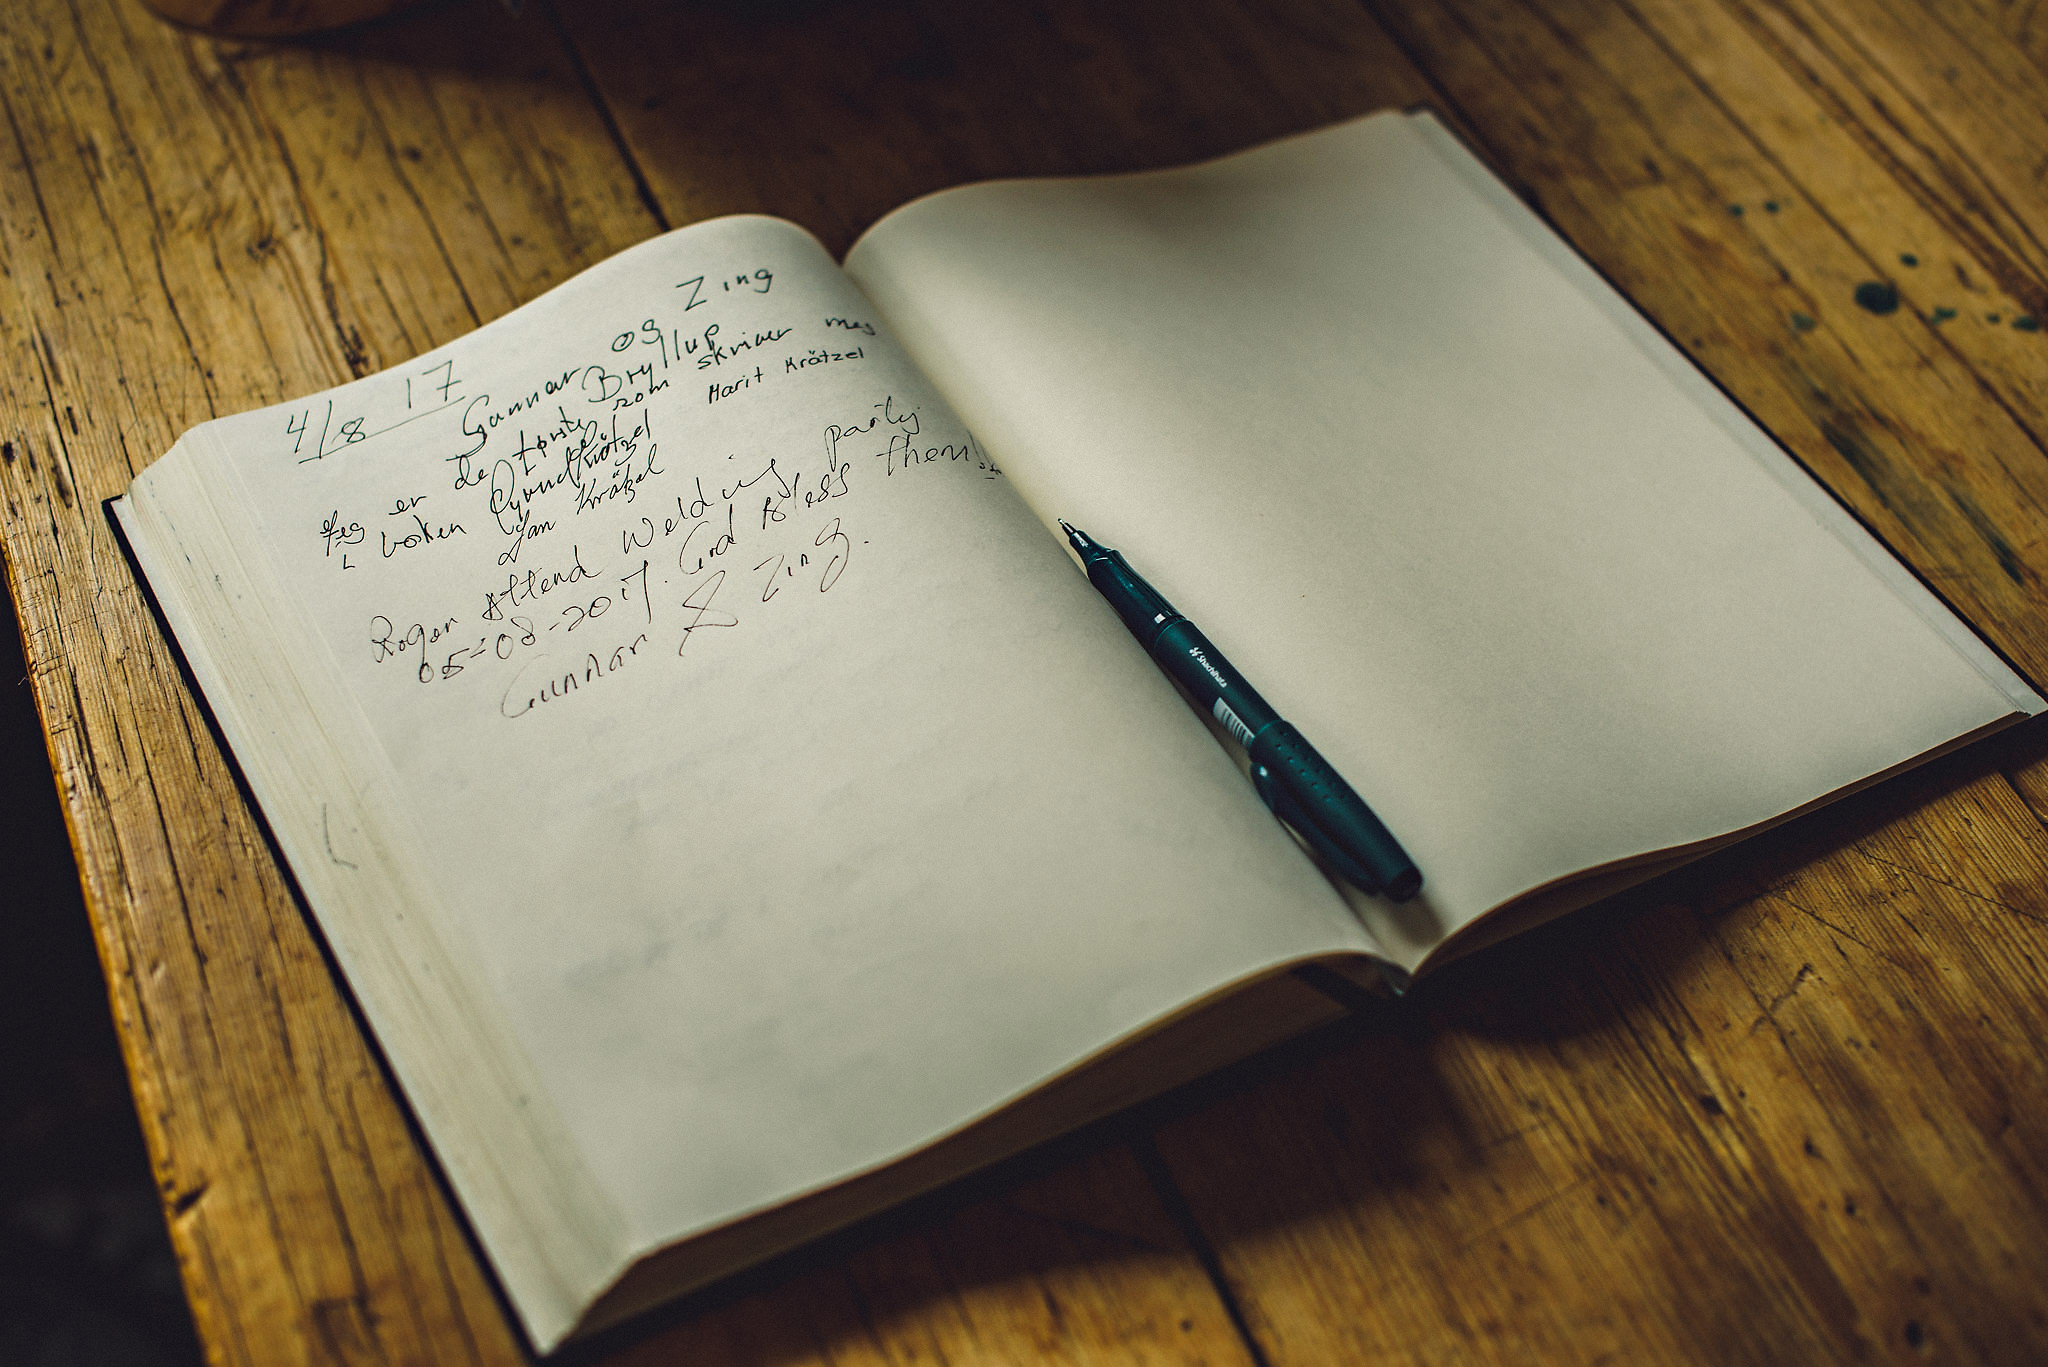 4/8 17
Gunnar og Zing
Bryllup
Jeg er de første som skriver meg
i boken Gerd Krätzel Marit Krätzel
Jan Krätzel
Roger Attend Welding party
05-08-2017. God Bless them!!
Gunnar & Zing.
Shachihata